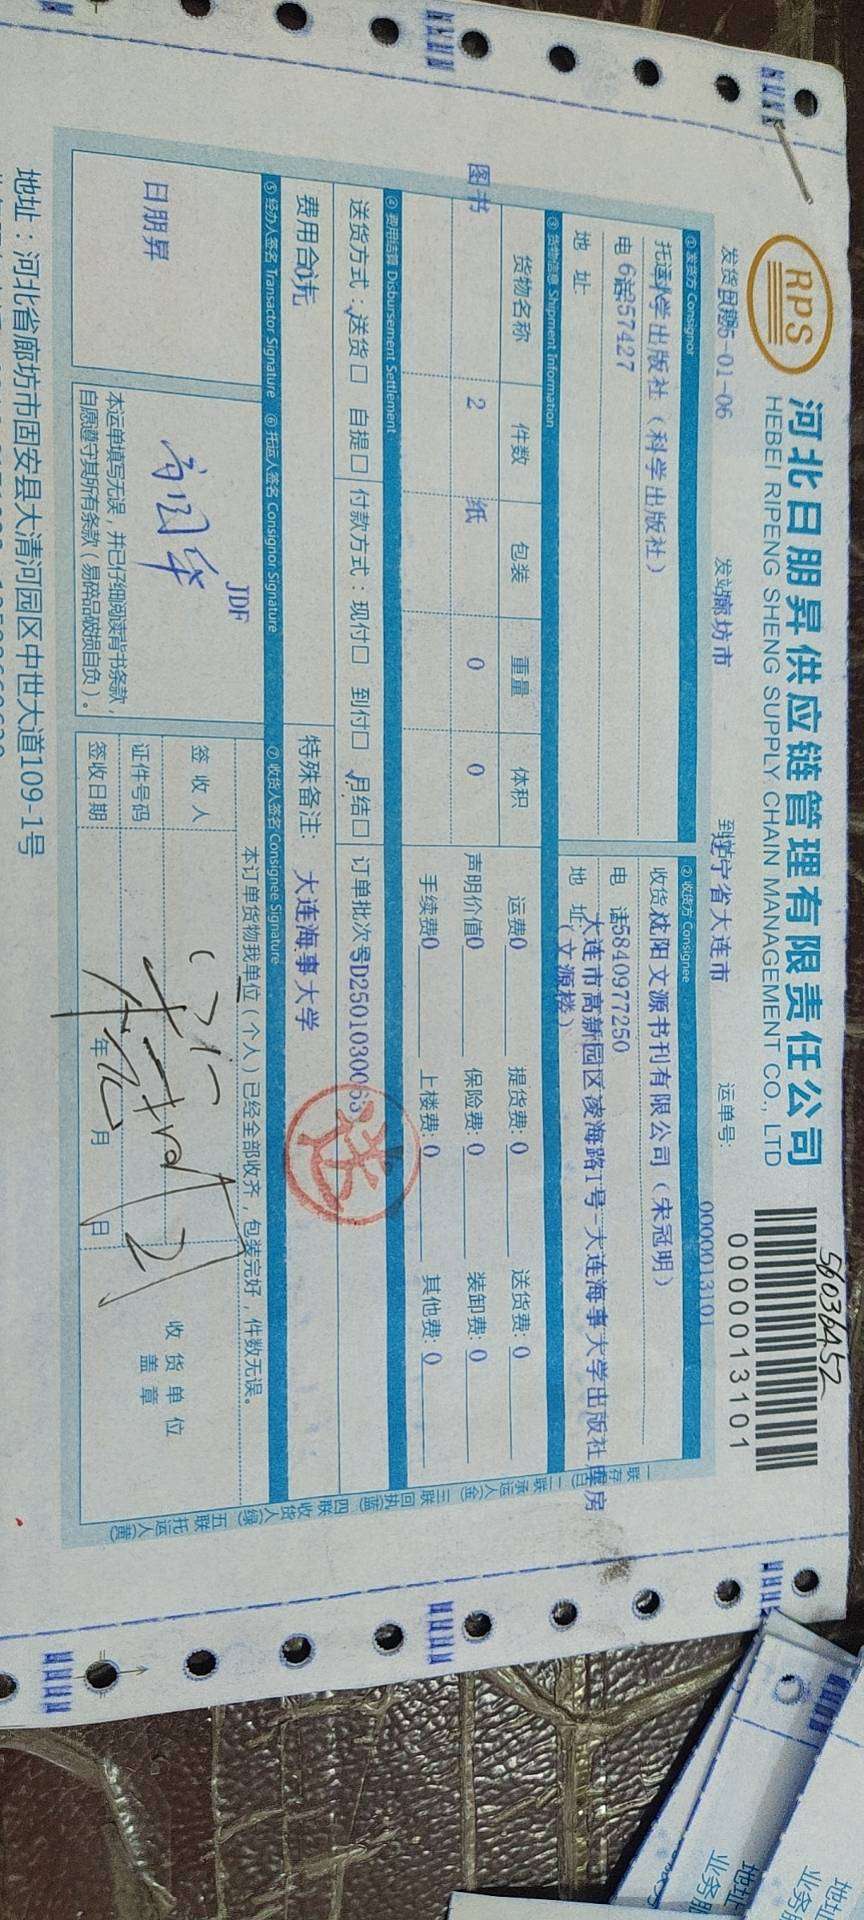 RPS
河北日朋昇供应链管理有限责任公司
HEBEI RIPENG SHENG SUPPLY CHAIN MANAGEMENT CO., LTD
56036452
0000013101
发货日期 5-01-06 发站 廊坊市 到站 辽宁省大连市 运单号: 0000013101
① 发货方 Consignor
托运 科学出版社（科学出版社）
电 话 57427
地 址:
② 收货方 Consignee
收货 沈阳文源书刊有限公司（宋冠明）
电 话 5840977250
地 址 大连市高新园区凌海路1号-大连海事大学出版社库房
（文源楼）
③ 货物信息 Shipment Information
货物名称 件数 包装 重量 体积
图书 2 纸 0 0
运费 0 提货费: 0 送货费: 0
声明价值 0 保险费: 0 装卸费: 0
手续费 0 上楼费: 0 其他费: 0
④ 费用结算 Disbursement Settlement
送货方式: √送货□ 自提□ 付款方式: 现付□ 到付□ √月结□ 订单批次号 D2501030063
费用合 0元 特殊备注: 大连海事大学
送
⑤ 经办人签名 Transactor Signature ⑥ 托运人签名 Consignor Signature ⑦ 收货人签名 Consignee Signature
日朋昇
JDF
本运单填写无误，并已仔细阅读背书条款，
自愿遵守其所有条款（易碎品破损自负）。
本订单货物我单位（个人）已经全部收齐，包装完好，件数无误。
签 收 人
证件号码
签收日期 年 月 日
收货单位
盖 章
一联存 二联承运人 三联回执(蓝) 四联收货人(绿) 五联托运人(黄)
地址：河北省廊坊市固安县大清河园区中世大道109-1号
地址
业务
地址
业务